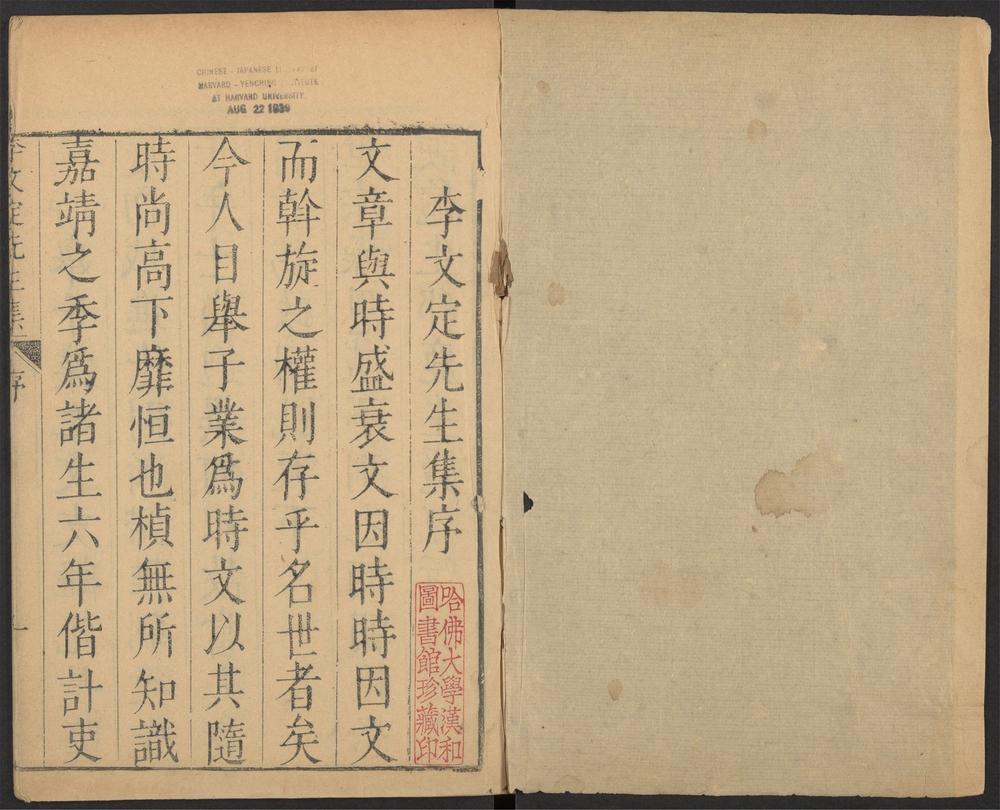 CHINESE - JAPANESE
HARVARD - YENCHING
AT HARVARD UNIVERSITY
AUG 22 1939
李文定先生集序
哈佛大學漢和
圖書館珍藏印
文章與時盛衰文因時時因文
而斡旋之權則存乎名世者矣
今人目舉子業爲時文以其隨
時尚高下靡恒也楨無所知識
嘉靖之季爲諸生六年偕計吏
李文定先生集
序
一